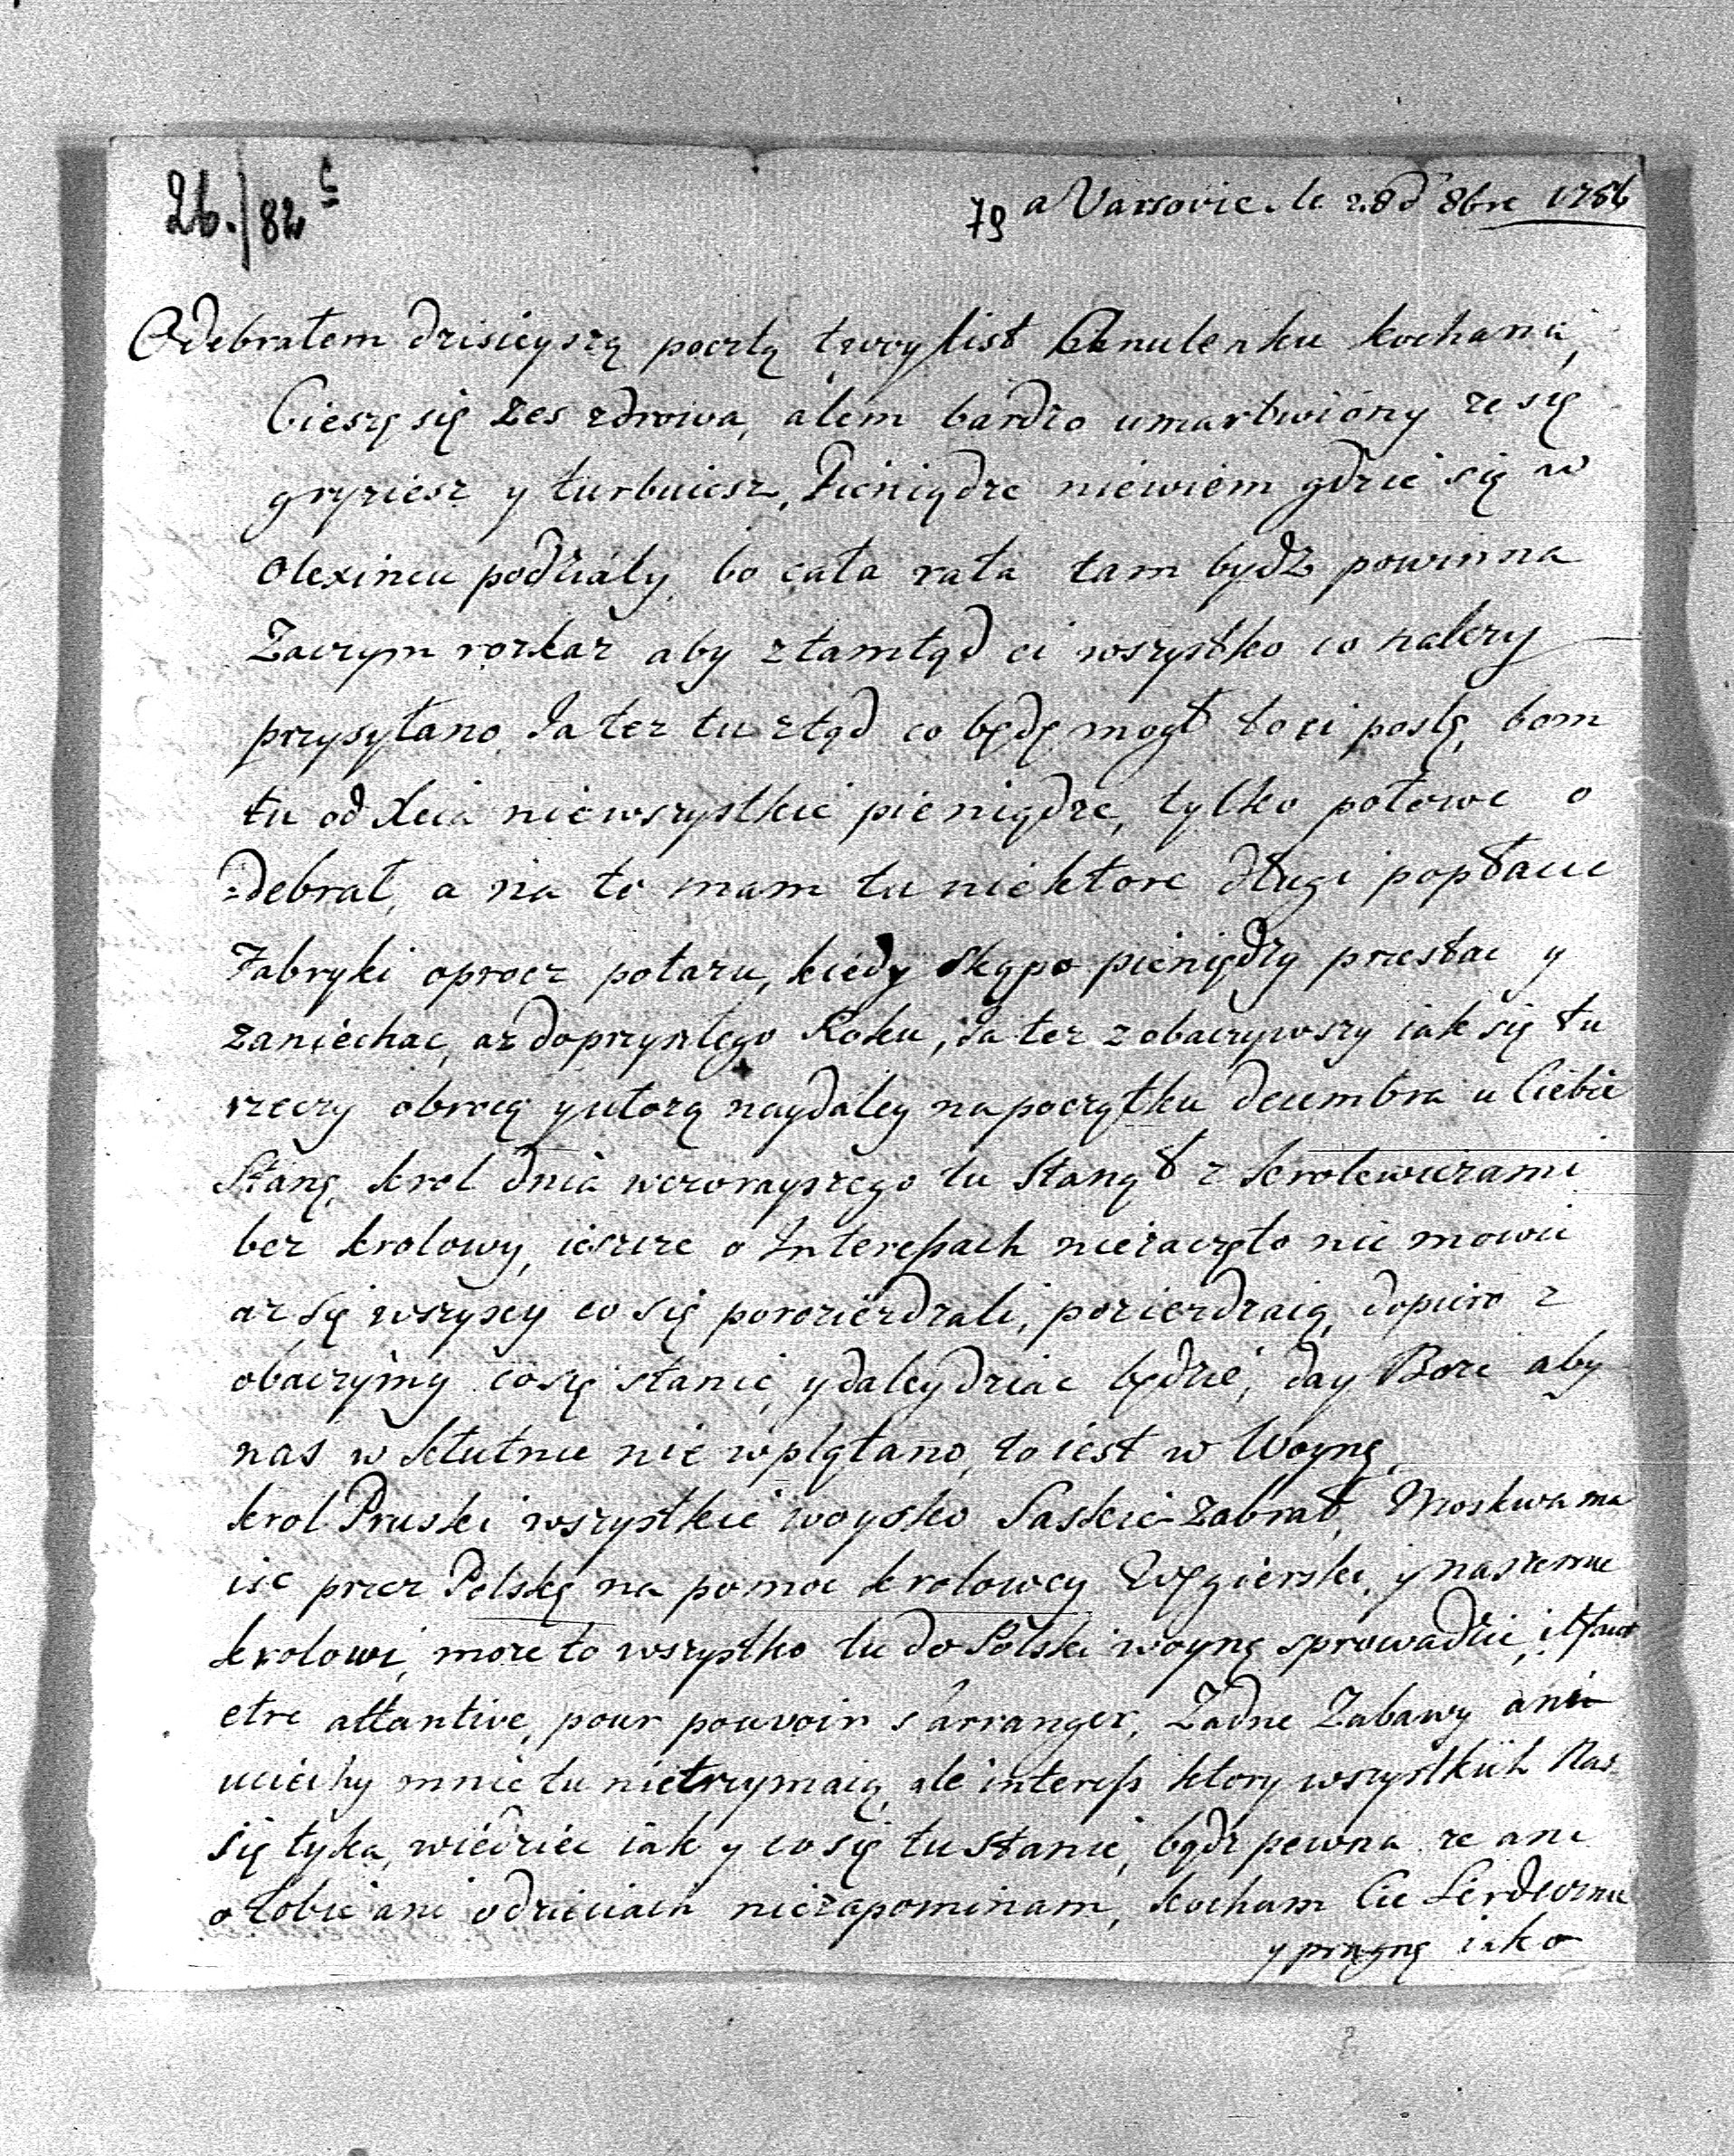 26./82 c
79 a Varsovie. le 28 d 8bre 1756
Odebrałem dzisieyszą pocztą twoy list Anulenku kochana,
Cieszę się zes zdrowa, alem bardzo umartwióny ze się
gryziesz y turbuiesz, Pieniądze niewiem gdzie się w
Olexincu podziały, bo cała rata tam bydz powinna
Zaczym rozkaz aby ztamtąd ci wszystko co nalezy
przysyłano, Ja tez tu ztąd co będę mogł to ci poslę, bom
tu od Xcia niewszystkie pieniądze, tylko połowe o
=debrał, a na to mam tu niektore długi popłacic
Fabryki oprocz pałazu, kiedy skąpo pieniędzy przestac y
zaniechac, az do przyszłego Roku, Ja tez zobaczywszy iak się tu
rzeczy obrocą y ułozą naydaley na początku decembra u Ciebie
Stanę, krol dnia wczorayszego tu stanął z krolewiczami
bez krolowy, ieszcze o Interessach niezaczęto nic mowic
az się wszyscy co się poroziezdzali, poziezdzaią, dopiro z
obaczymy co się stanie, y daley dziac będzie, day Boze aby
nas w kłutnie nie wplątano, to iest w Woynę,
krol Pruski wszystkie woysko Saskie zabrał, Moskwa ma
isc przez Polskę na pomoc krolowey Węgierski, y naszemu
krolowi, moze to wszystko tu do Polski woynę sprowadzic, il faut
etre attantive, pour pouvoir s'arranger, Zadne Zabawy ani
uciechy mnie tu nietrzymaią, ale interess ktory wszystkich Nas
się tyka, wiedziec iak y co się tu stanie, bądz pewna ze ani
o tobie ani o dzieciach niezapominam, kocham Cie Serdecznie
y pragnę iako